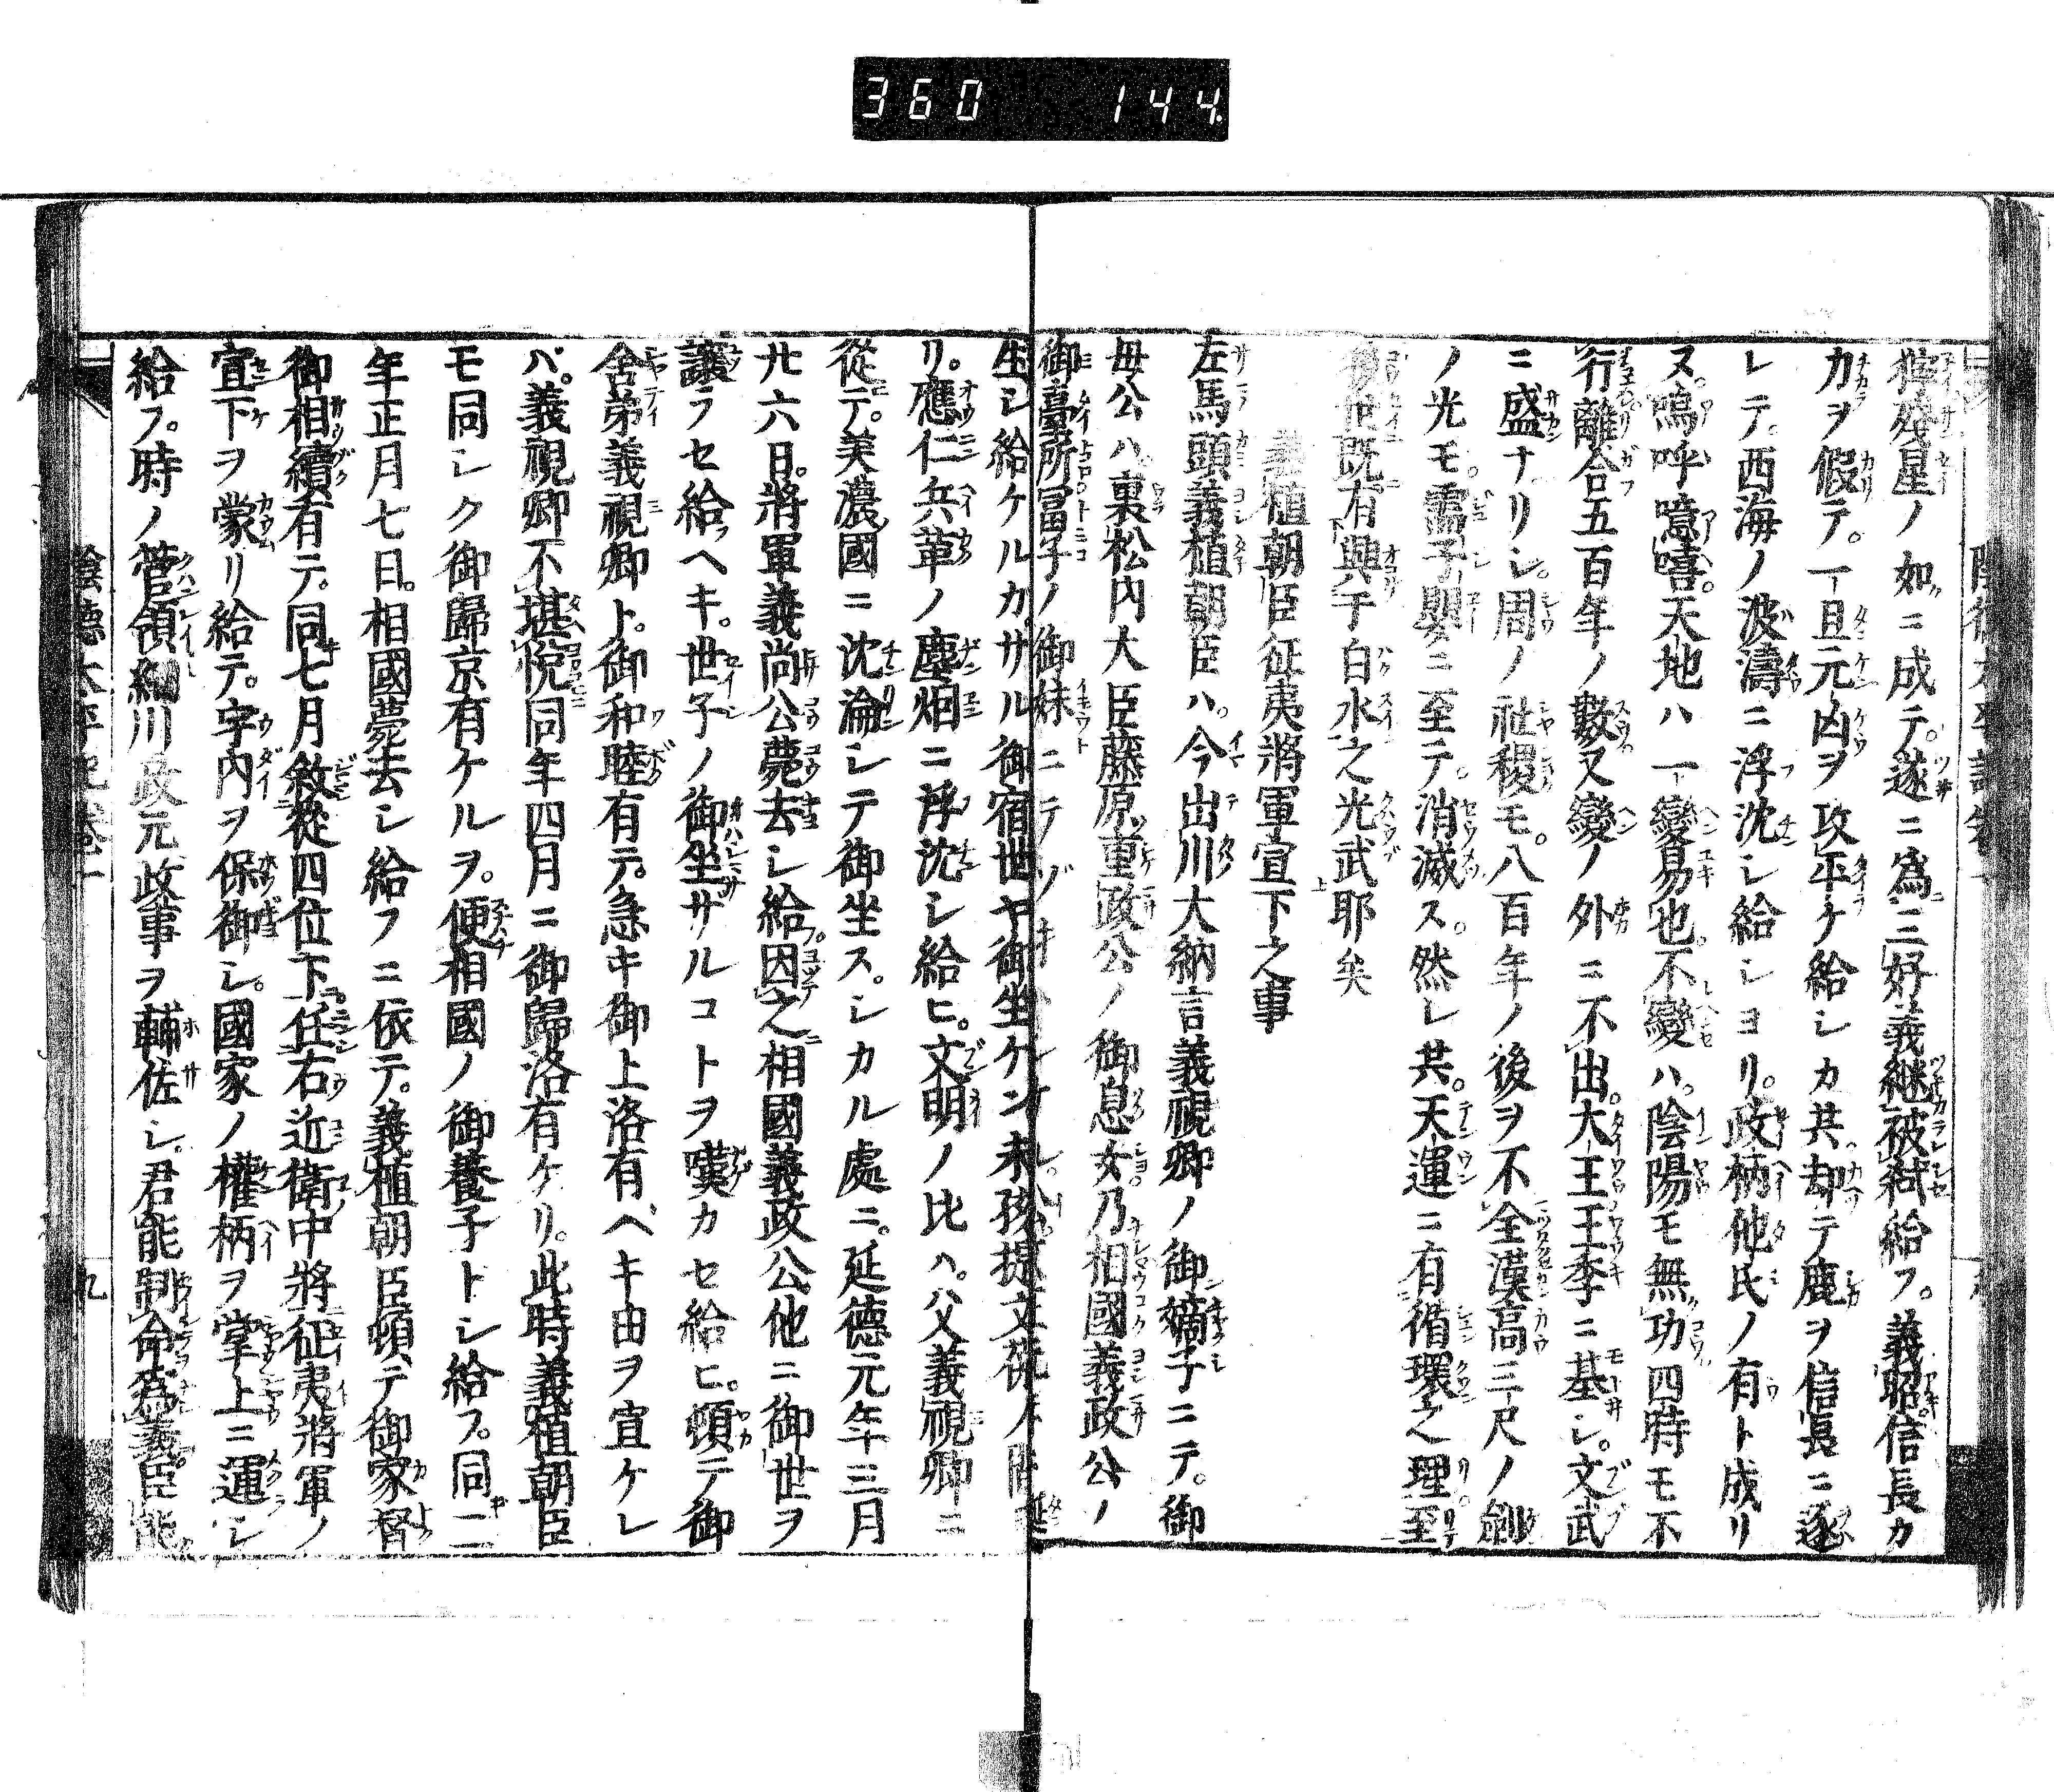 360 144
粹殘星ノ如ニ成テ遂ニ為三好義継被弑給フ。義昭信長カ
力ヲ假テ。一旦元凶ヲ攻平ケ給シカ共却テ鹿ヲ信長ニ逐
レテ。西海ノ波濤ニ浮沈シ給シヨリ。政柄他氏ノ有ト成リ
ヌ。嗚呼噫嘻天地ハ一變易也。不變ハ。陰陽モ無功四時モ不
行離合五百年ノ數又變ノ外ニ不出。大王王季ニ基シ。文武
ニ盛ナリシ。周ノ祉稷モ。八百年ノ後ヲ不全漢高三尺ノ劔
ノ光モ。孺子嬰ニ至テ。消滅ス。然レ共。天運ニ有循環之理至
後世既有興于白水之光武耶矣
義植朝臣征夷將軍宣下之事
左馬頭義植朝臣ハ。今出川大納言義視卿ノ御嫡子ニテ。御
母公ハ裏松内大臣藤原重政公ノ御息女乃相國義政公ノ
御臺所冨子ノ御妹ニテゾ
生シ給ケルカ。サル御宿世ヤ御坐ケン未孩提
リ。應仁兵革ノ塵烟ニ浮沈シ給ヒ。文明ノ比ハ。父義視卿ニ
從テ。美濃國ニ沈淪シテ御坐ス。シカル處ニ。延德元年三月
廿六日。將軍義尚公薨去シ給因之相國義政公他ニ御世ヲ
讓ラセ給ヘキ。世子ノ御坐サルコトヲ嘆カセ給ヒ。頓テ御
舍弟義視卿ト。御和睦有テ。急キ御上洛有ヘキ由ヲ宣ケレ
バ。義視卿不堪悅同年四月ニ御歸洛有ケリ。此時義植朝臣
モ同シク御歸京有ケルヲ。便相國ノ御養子トシ給フ。同二
年正月七日。相國薨去シ給フニ依テ。義植朝臣頓テ御家督
御相續有テ。同七月敘從四位下任右近衛中將征夷將軍ノ
宣下ヲ蒙リ給テ。宇内ヲ保御シ。國家ノ權柄ヲ掌上ニ運シ
給フ。時ノ管領細川政元政事ヲ輔佐シ。君能制命為義臣能
陰德太平記卷一 九